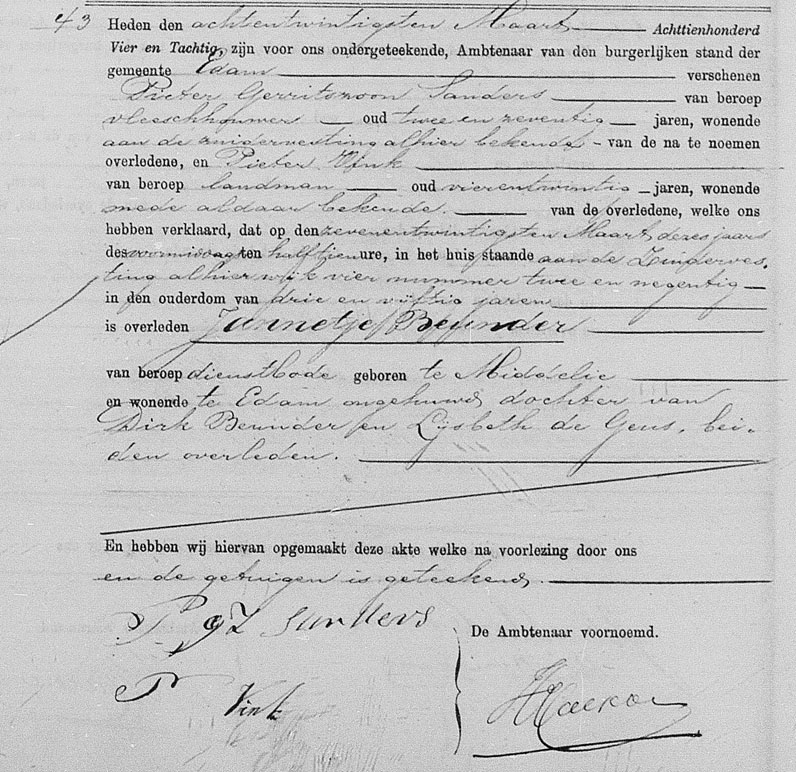 43 Heden den achtentwintigsten Maart Achttienhonderd
Vier en Tachtig, zijn voor ons ondergeteekende, Ambtenaar van den burgerlijken stand der
gemeente Edam verschenen
Pieter Gerritszoon Sanders van beroep
vleeschhouwer oud twee en zeventig jaren, wonende
aan de zuidervesting alhier bekende - van de na te noemen
overledene, en Pieter Vink
van beroep landman oud vierentwintig jaren, wonende
mede aldaar bekende. van de overledene, welke ons
hebben verklaard, dat op den zevenentwintigsten Maart dezes jaars
des voormiddags ten half tien ure, in het huis staande aan de Zuiderves-
ting alhier wijk vier nummer twee en negentig
in den ouderdom van drie en vijftig jaren
is overleden Jannetje Beunder
van beroep dienstbode geboren te Middelie
en wonende te Edam ongehuwd dochter van
Dirk Beunder en Lijsbeth de Geus, bei-
den overleden.
En hebben wij hiervan opgemaakt deze akte welke na voorlezing door ons
en de getuigen is geteekend.
P gz Sanders
De Ambtenaar voornoemd.
P Vink